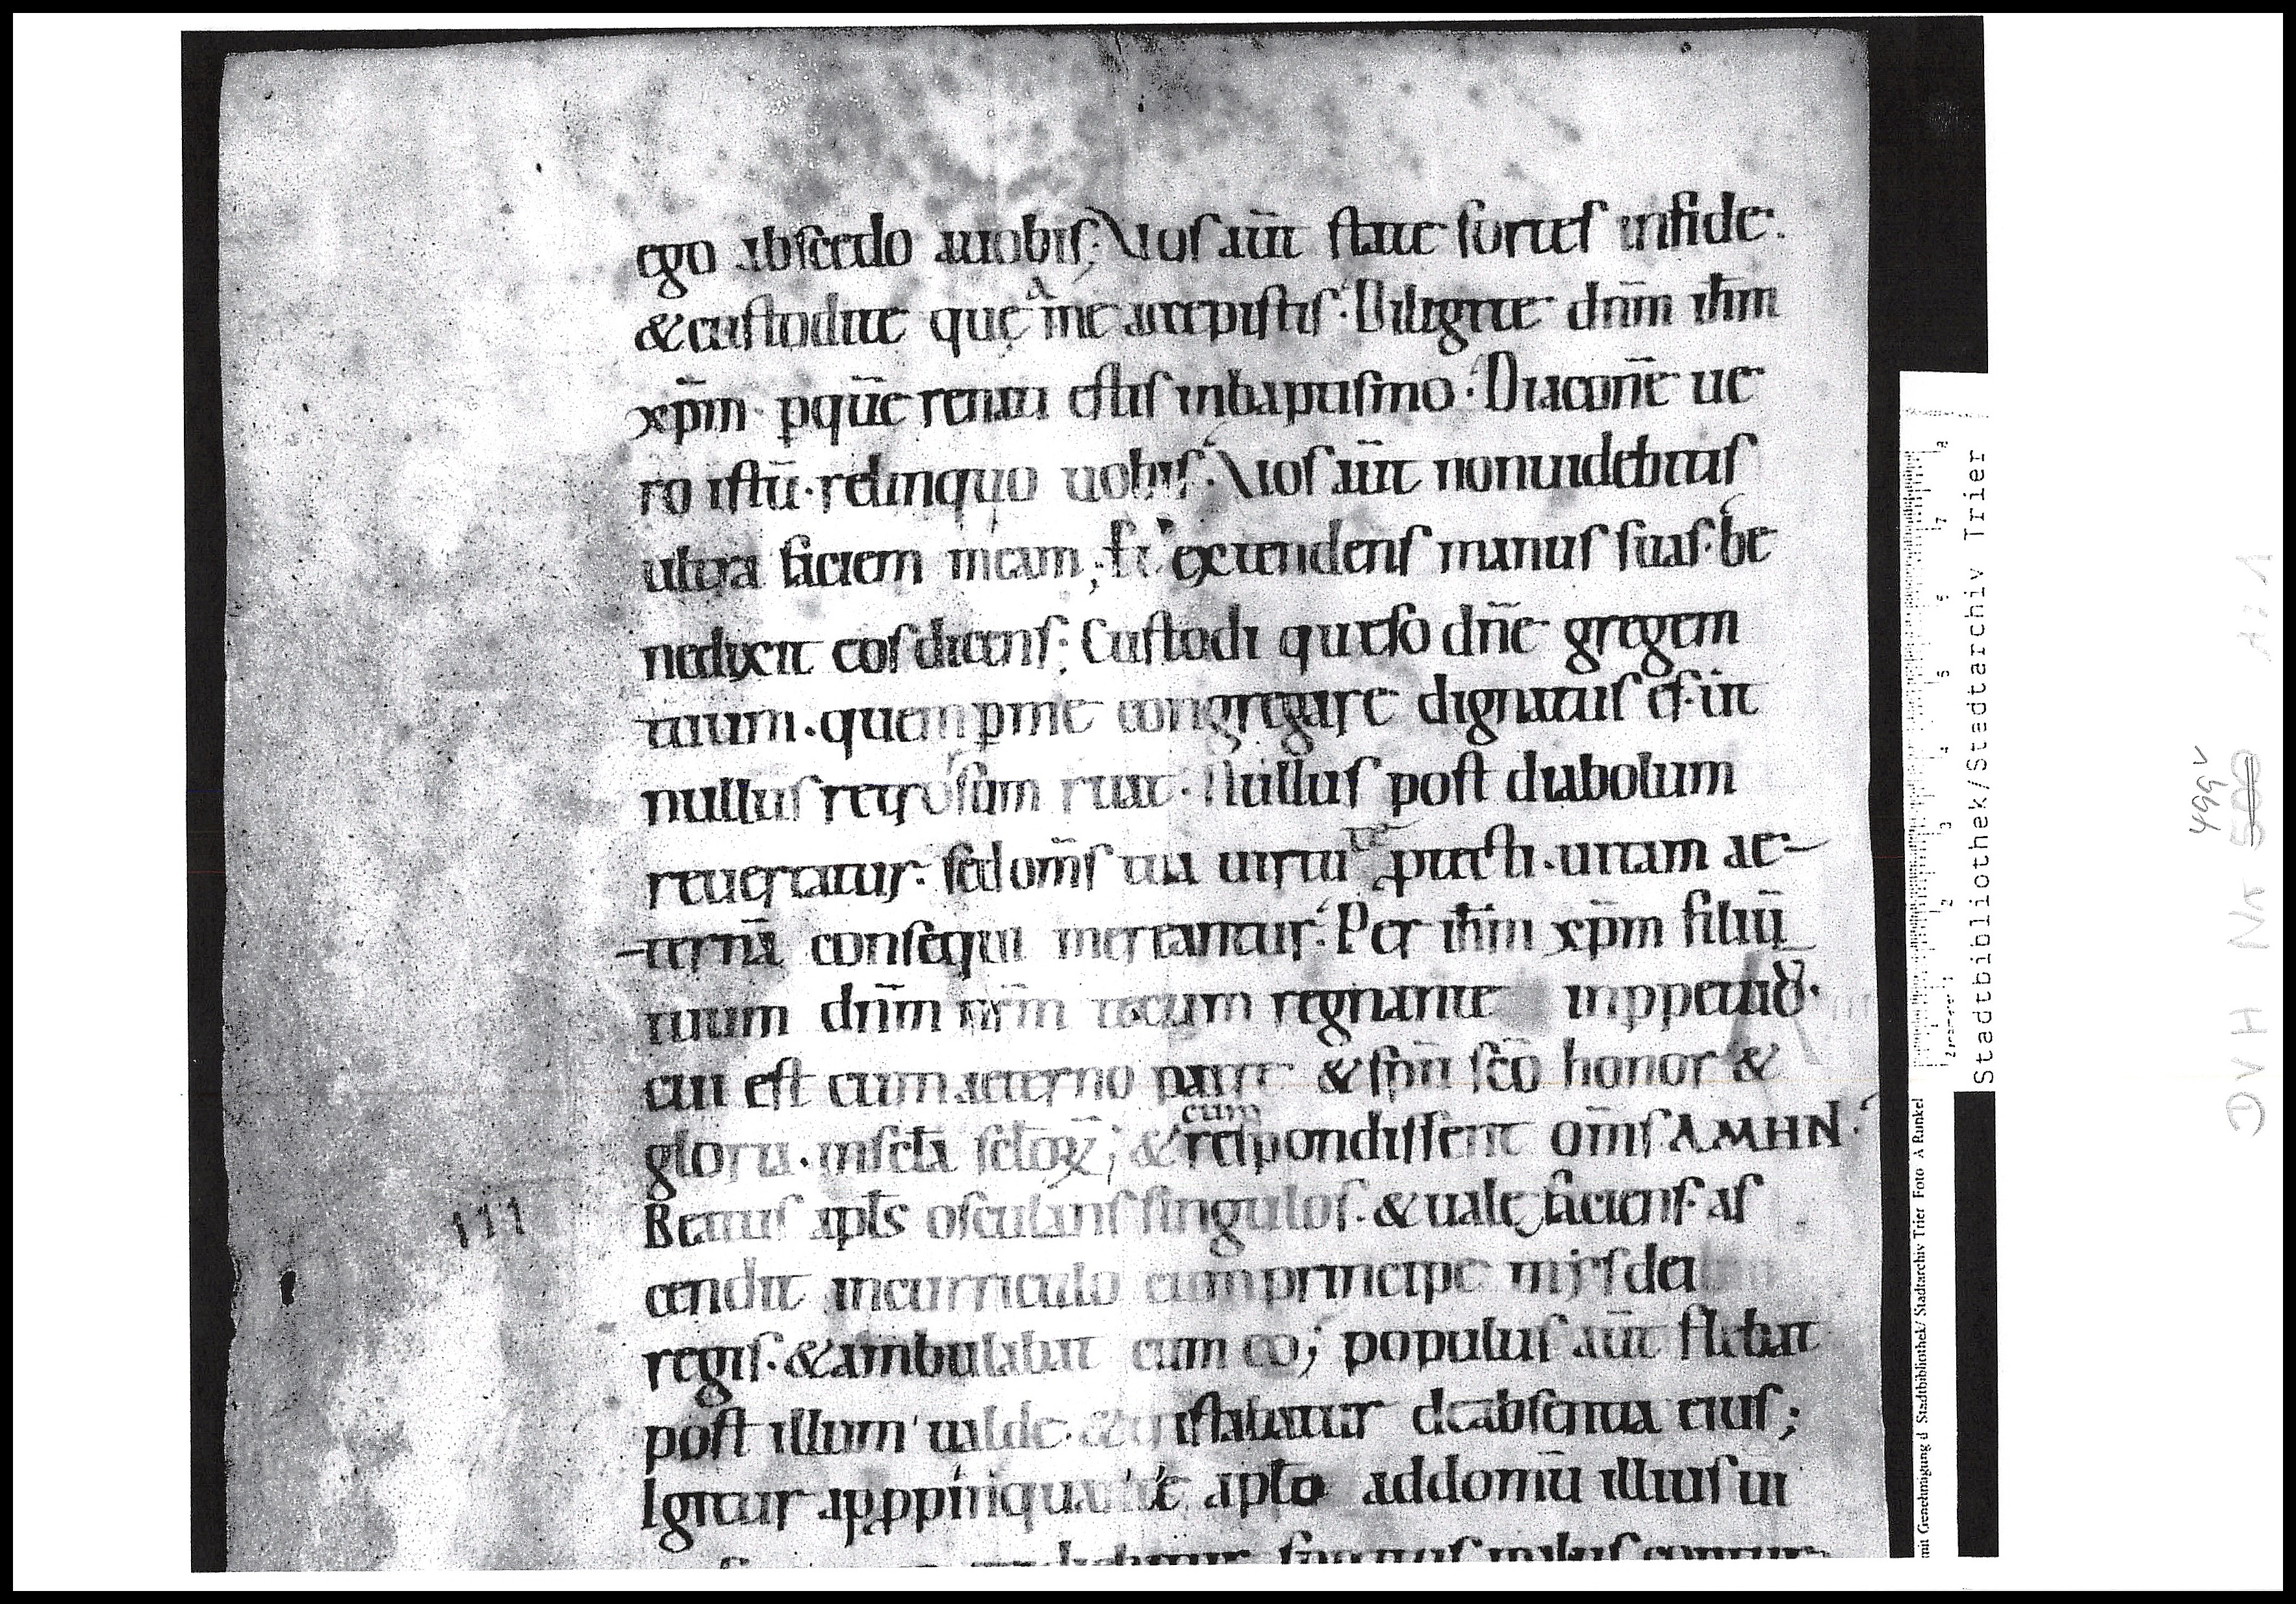 ego abscedo auobis; Vos aūt state fortes infide.
& custodite quę a me accepistis. Diligite dnm̄ ihm̄
xpm̄ pquē renati estis inbaptismo. Diaconē ue
ro istū. relinquo uobis. Vos aūt nonuidebitis
ultra faciem meam; Et extendens manus suas. be
nedixit eos dicens; Custodi queso dnē gregem
tuum. quem pme congregare dignatus es. ūt
nullus retrorsum ruat. Nullus post diabolum
reuertatur. sed om̄s tua uirtute ptecti. uitam ae-
-ternā consequi mereantur. Per ihm̄ xpm̄ filiū
tuum dnm̄ nrm̄ tecum regnante inppetuū.
cui est cum aeterno patre & spū scō honor &
gloria. insctā sctōꝝ; & cum respondissent om̄s AMHN.
Beatus aplś osculans singulos. & uale faciens. as
cendit incurriculo cum principe
regis. & ambulabat cum eo; populus aūt flebat
post illum ualde. & tristabatur deabsentia eius;
Igitur appropinquante apło addomū illius ui
111
Stadtbibliothek/Stadtarchiv Trier
mit Genehmigung d Stadtbibliothek/ Stadtarchiv Trier Foto A Runkel
499v
500
DVH Nr